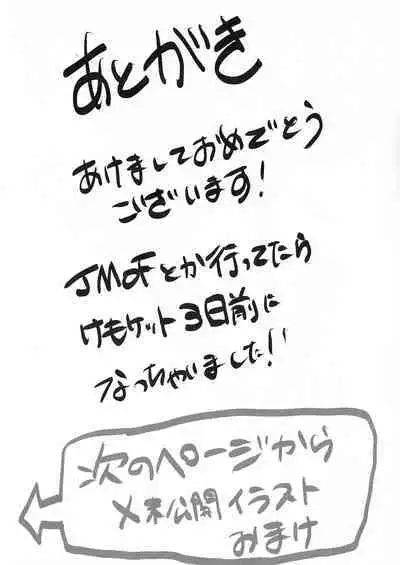 あとがき
あけましておめでとう
ございます!
JMoFとか行ってたら
けもケット3日前に
なっちゃいました!!
次のページから
メ未公開イラスト
おまけ